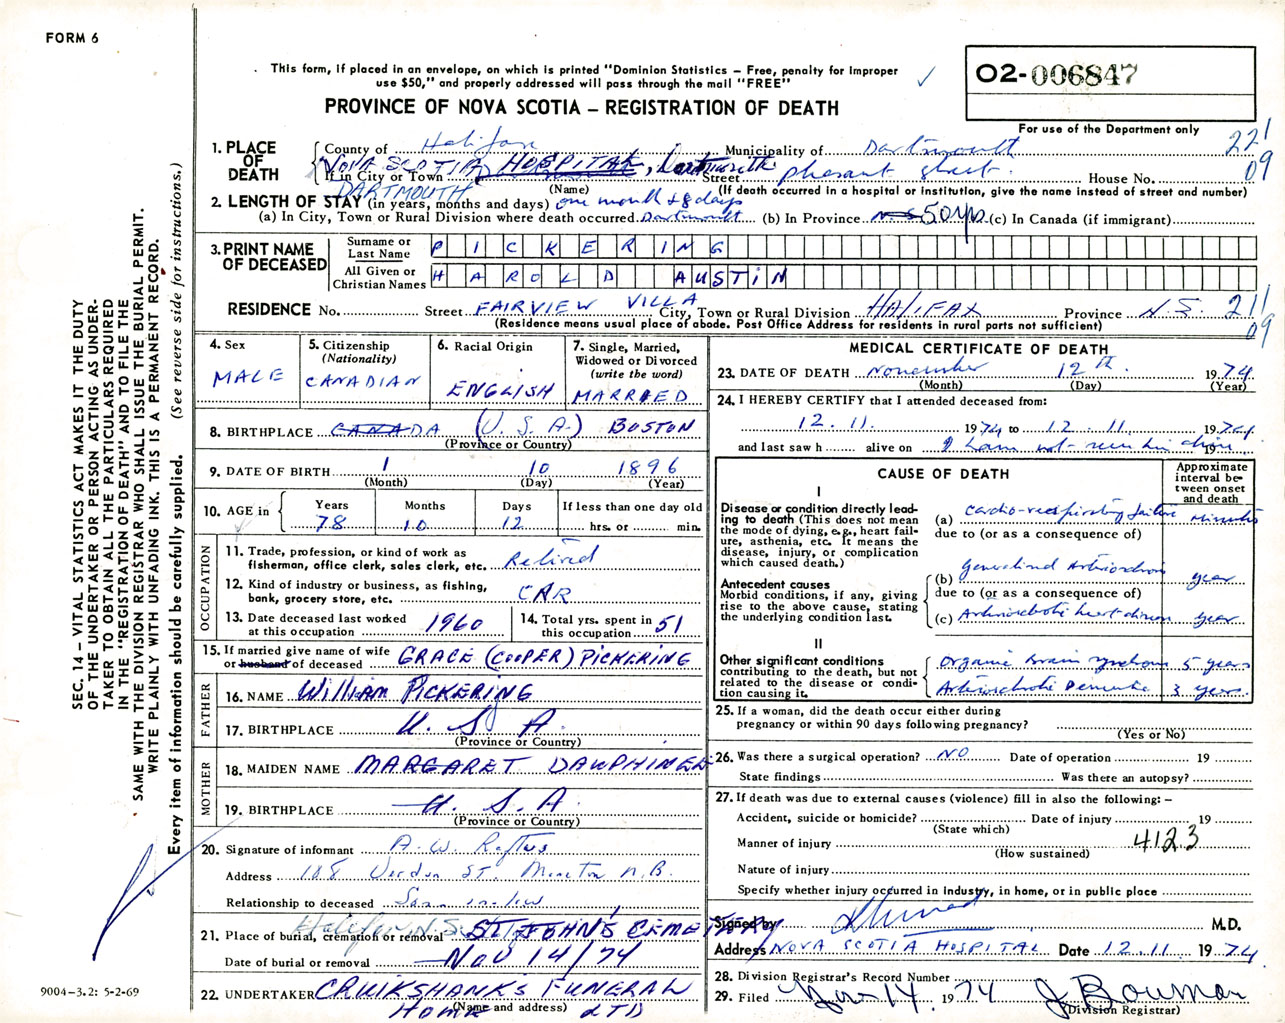 FORM 6
This form, if placed in an envelope, on which is printed "Dominion Statistics – Free, penalty for improper
use $50," and properly addressed will pass through the mail "FREE"
O2-006847
PROVINCE OF NOVA SCOTIA – REGISTRATION OF DEATH
For use of the Department only
221
09
1. PLACE OF DEATH
County of Halifax Municipality of Dartmouth
NOVA SCOTIA HOSPITAL, Dartmouth
If in City or Town Street pleasant street House No.
DARTMOUTH (Name) (If death occurred in a hospital or institution, give the name instead of street and number)
2. LENGTH OF STAY (in years, months and days) one month & 8 days
(a) In City, Town or Rural Division where death occurred Dartmouth (b) In Province N.S. 50 yrs (c) In Canada (if immigrant)
3. PRINT NAME OF DECEASED
Surname or Last Name PICKERING
All Given or Christian Names HAROLD AUSTIN
RESIDENCE No. Street FAIRVIEW VILLA City, Town or Rural Division HALIFAX Province N.S.
211
09
(Residence means usual place of abode. Post Office Address for residents in rural parts not sufficient)
4. Sex
MALE
5. Citizenship
(Nationality)
CANADIAN
6. Racial Origin
ENGLISH
7. Single, Married,
Widowed or Divorced
(write the word)
MARRIED
8. BIRTHPLACE CANADA (U.S.A.) BOSTON
(Province or Country)
9. DATE OF BIRTH 1 10 1896
(Month) (Day) (Year)
10. AGE in
Years Months Days If less than one day old
78 10 12 hrs. or min.
OCCUPATION
11. Trade, profession, or kind of work as
fisherman, office clerk, sales clerk, etc. Retired
12. Kind of industry or business, as fishing,
bank, grocery store, etc. CAR
13. Date deceased last worked
at this occupation 1960
14. Total yrs. spent in
this occupation 51
15. If married give name of wife
or husband of deceased GRACE (COOPER) PICKERING
FATHER
16. NAME William PICKERING
17. BIRTHPLACE U.S.A.
(Province or Country)
MOTHER
18. MAIDEN NAME MARGARET DAUPHINEE
19. BIRTHPLACE U.S.A.
(Province or Country)
20. Signature of informant A. W.
Address 108 St. Moncton N.B.
Relationship to deceased Son in-law
Halifax N.S.
21. Place of burial, cremation or removal ST. JOHN'S CEMETERY
Date of burial or removal NOV 14/74
22. UNDERTAKER CRUIKSHANKS FUNERAL
HOME (Name and address) LTD
MEDICAL CERTIFICATE OF DEATH
23. DATE OF DEATH November 12th 1974
(Month) (Day) (Year)
24. I HEREBY CERTIFY that I attended deceased from:
12. 11. 1974 to 12. 11 1974
and last saw h alive on I have not seen him alive 19
CAUSE OF DEATH
Approximate
interval be-
tween onset
and death
I
Disease or condition directly lead-
ing to death (This does not mean
the mode of dying, e.g., heart fail-
ure, asthenia, etc. It means the
disease, injury, or complication
which caused death.)
(a) Cardio-respiratory failure minutes
due to (or as a consequence of)
Antecedent causes
Morbid conditions, if any, giving
rise to the above cause, stating
the underlying condition last.
(b) Generalized Arteriosclerosis year
due to (or as a consequence of)
(c) Arteriosclerotic heart disease year
II
Other significant conditions
contributing to the death, but not
related to the disease or condi-
tion causing it.
Organic brain syndrome 5 years
Arteriosclerotic Dementia 3 years
25. If a woman, did the death occur either during
pregnancy or within 90 days following pregnancy?
(Yes or No)
26. Was there a surgical operation? NO Date of operation 19
State findings Was there an autopsy?
27. If death was due to external causes (violence) fill in also the following: –
Accident, suicide or homicide? Date of injury 19
(State which)
Manner of injury 412.3
(How sustained)
Nature of injury
Specify whether injury occurred in industry, in home, or in public place
Signed by Ahmad M.D.
Address NOVA SCOTIA HOSPITAL Date 12.11. 1974
28. Division Registrar's Record Number
29. Filed Nov 14 1974 J Bowman
(Division Registrar)
SEC. 14 – VITAL STATISTICS ACT MAKES IT THE DUTY
OF THE UNDERTAKER OR PERSON ACTING AS UNDER-
TAKER TO OBTAIN ALL THE PARTICULARS REQUIRED
IN THE "REGISTRATION OF DEATH" AND TO FILE THE
SAME WITH THE DIVISION REGISTRAR WHO SHALL ISSUE THE BURIAL PERMIT.
WRITE PLAINLY WITH UNFADING INK. THIS IS A PERMANENT RECORD.
Every item of information should be carefully supplied. (See reverse side for instructions.)
9004–3.2: 5-2-69